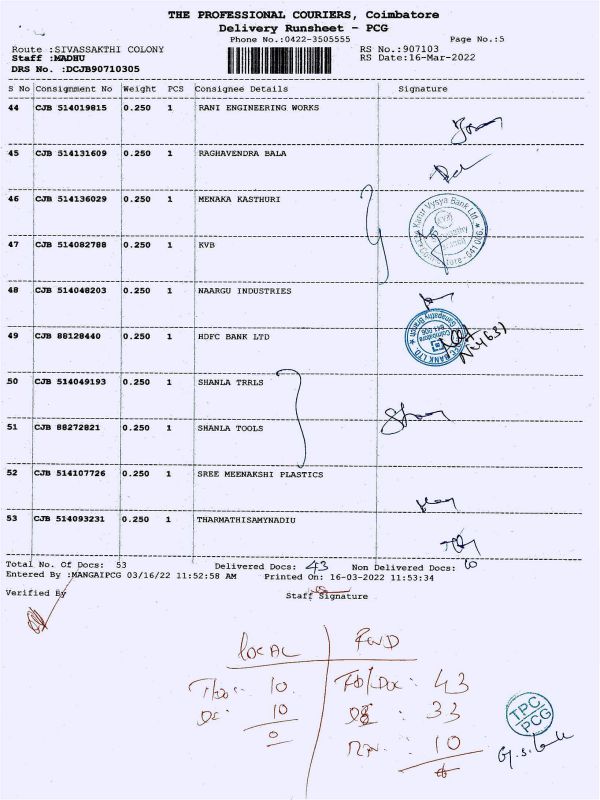 THE PROFESSIONAL COURIERS, Coimbatore
Delivery Runsheet - PCG
Phone No.:0422-3505555
Page No.:5
Route :SIVASSAKTHI COLONY
RS No.:907103
Staff :MADHU
RS Date:16-Mar-2022
DRS No. :DCJB90710305
S No Consignment No Weight PCS Consignee Details Signature
44 CJB 514019815 0.250 1 RANI ENGINEERING WORKS
45 CJB 514131609 0.250 1 RAGHAVENDRA BALA
46 CJB 514136029 0.250 1 MENAKA KASTHURI
47 CJB 514082788 0.250 1 KVB
48 CJB 514048203 0.250 1 NAARGU INDUSTRIES
49 CJB 88128440 0.250 1 HDFC BANK LTD
50 CJB 514049193 0.250 1 SHANLA TRRLS
51 CJB 88272821 0.250 1 SHANLA TOOLS
52 CJB 514107726 0.250 1 SREE MEENAKSHI PLASTICS
53 CJB 514093231 0.250 1 THARMATHISAMYNADIU
Total No. Of Docs: 53 Delivered Docs: 43 Non Delivered Docs: 10
Entered By :MANGAIPCG 03/16/22 11:52:58 AM Printed On: 16-03-2022 11:53:34
Verified By
Staff Signature
LOCAL FWD
10 43
10 : 33
0 10
TPC
PCG